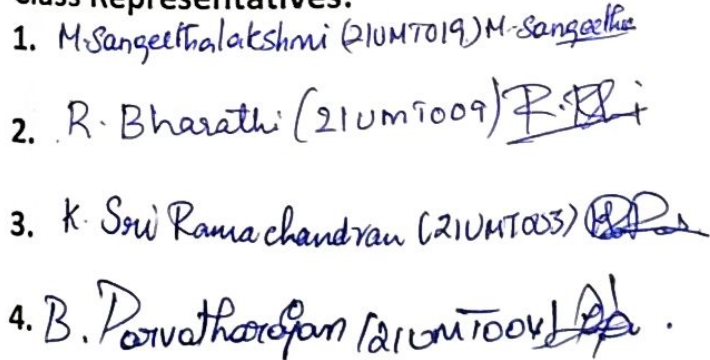 Class Representatives:
1. M.Sangeethalakshmi (21UMT019) M.Sangeetha
2. R. Bharathi (21UMT009)
3. K. Sri Ramachandran (21UMT003)
4. B. Parvatharajan (21UMT004)